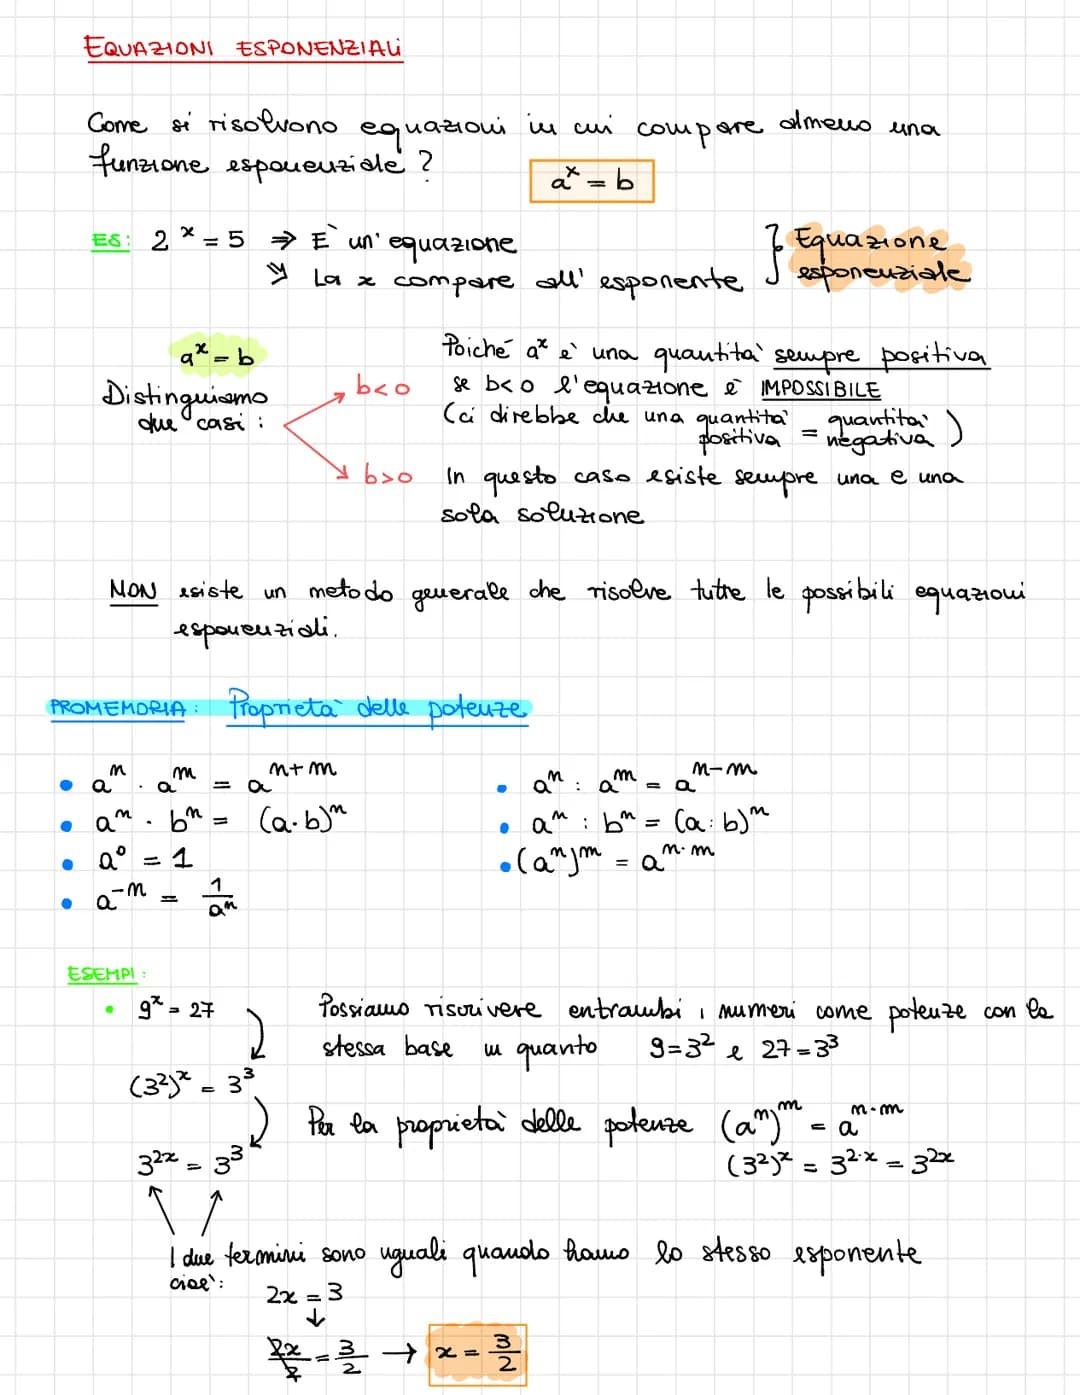 EQUAZIONI ESPONENZIALI
Come si risolvono equazioni in cui compare almeno una
funzione esponenziale ?
a^x = b
ES: 2^x = 5 ⇒ E` un' equazione
⇒ La x compare all' esponente
} Equazione
esponenziale
a^x = b
Distinguiamo
due casi :
b<0
Poiché a^x è una quantità sempre positiva
se b<0 l'equazione è IMPOSSIBILE
(ci direbbe che una quantità positiva = quantità negativa)
b>0
In questo caso esiste sempre una e una
sola soluzione
NON esiste un metodo generale che risolve tutte le possibili equazioni
esponenziali.
PROMEMORIA : Proprietà delle potenze
• a^n · a^m = a^{n+m}
• a^n : a^m = a^{n-m}
• a^n · b^n = (a·b)^n
• a^n : b^n = (a:b)^n
• a^0 = 1
• (a^n)^m = a^{n·m}
• a^{-n} = 1/a^n
ESEMPI :
• 9^x = 27
Possiamo riscrivere entrambi i numeri come potenze con la
stessa base in quanto 9=3^2 e 27=3^3
(3^2)^x = 3^3
Per la proprietà delle potenze (a^n)^m = a^{n·m}
3^{2x} = 3^3
(3^2)^x = 3^{2·x} = 3^{2x}
I due termini sono uguali quando hanno lo stesso esponente
cioè:
2x = 3
↓
2x/2 = 3/2 → x = 3/2